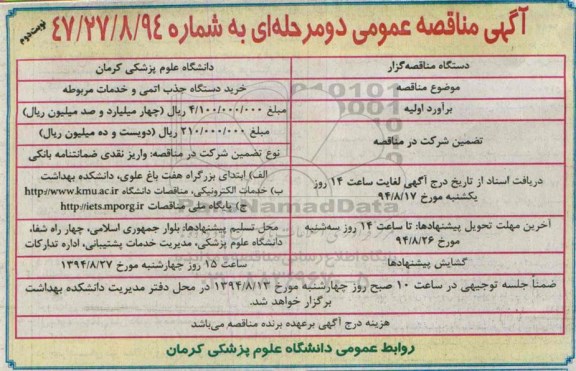 آگهی مناقصه عمومی دومرحله‌ای به شماره ۴۷/۲۷/۸/۹۴
نوبت دوم
دستگاه مناقصه‌گزار
دانشگاه علوم پزشکی کرمان
موضوع مناقصه
خرید دستگاه جذب اتمی و خدمات مربوطه
برآورد اولیه
مبلغ ۴/۱۰۰/۰۰۰/۰۰۰ ریال (چهار میلیارد و صد میلیون ریال)
تضمین شرکت در مناقصه
مبلغ ۲۱۰/۰۰۰/۰۰۰ ریال (دویست و ده میلیون ریال)
نوع تضمین شرکت در مناقصه: واریز نقدی ضمانتنامه بانکی
دریافت اسناد از تاریخ درج آگهی لغایت ساعت ۱۴ روز
یکشنبه مورخ ۹۴/۸/۱۷
الف) ابتدای بزرگراه هفت باغ علوی، دانشکده بهداشت
ب) خدمات الکترونیکی، مناقصات دانشگاه http://www.kmu.ac.ir
ج) پایگاه ملی مناقصات http://iets.mporg.ir
آخرین مهلت تحویل پیشنهادها: تا ساعت ۱۴ روز سه‌شنبه
مورخ ۹۴/۸/۲۶
محل تسلیم پیشنهادها: بلوار جمهوری اسلامی، چهار راه شفا،
دانشگاه علوم پزشکی، مدیریت خدمات پشتیبانی، اداره تدارکات
گشایش پیشنهادها
ساعت ۱۵ روز چهارشنبه مورخ ۱۳۹۴/۸/۲۷
ضمناً جلسه توجیهی در ساعت ۱۰ صبح روز چهارشنبه مورخ ۱۳۹۴/۸/۱۳ در محل دفتر مدیریت دانشکده بهداشت
برگزار خواهد شد.
هزینه درج آگهی برعهده برنده مناقصه می‌باشد
روابط عمومی دانشگاه علوم پزشکی کرمان